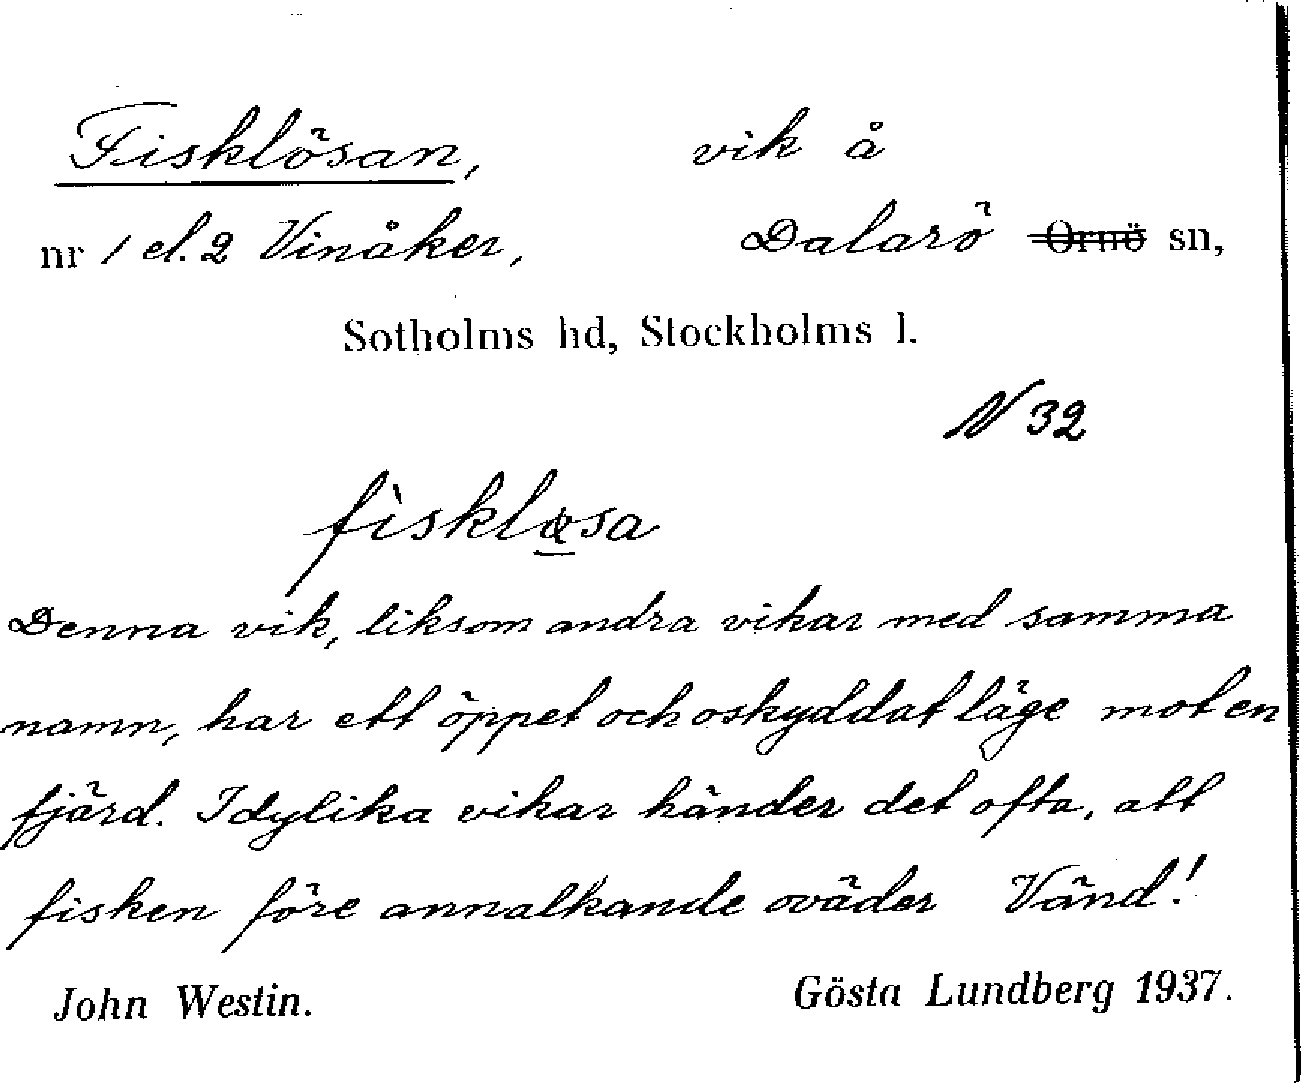 Fisklösan, vik å
nr 1 el. 2 Vinåker, Dalarö Ornö sn,
Sotholms hd, Stockholms l.
N 32
fìsklø̱sa
Denna vik, liksom andra vikar med samma
namn, har ett öppet och oskyddat läge mot en
fjärd. I dylika vikar händer det ofta, att
fisken före annalkande oväder Vänd!
John Westin. Gösta Lundberg 1937.